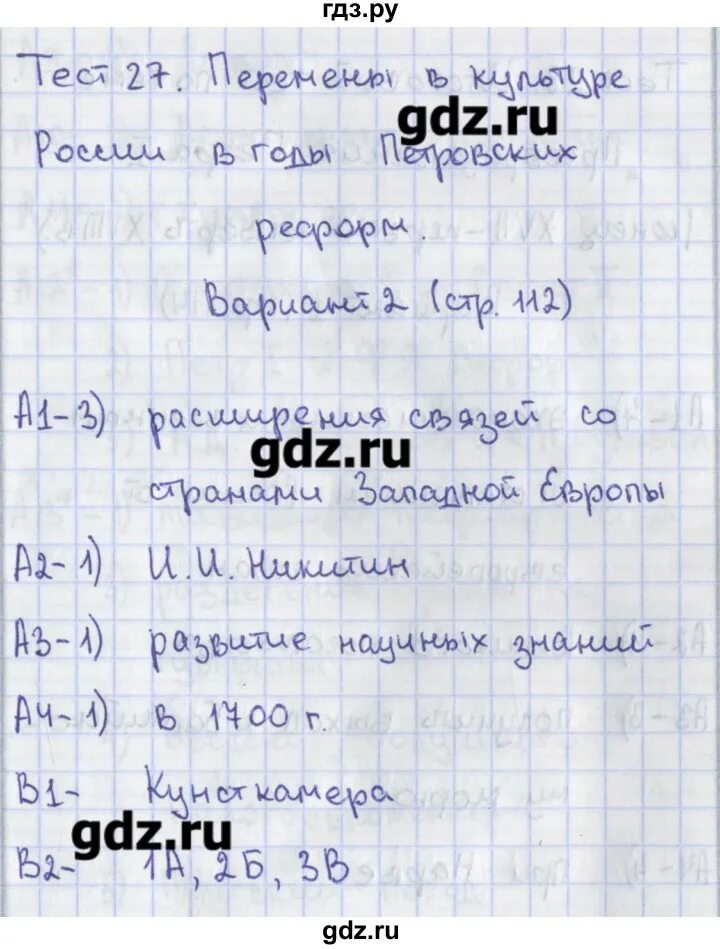 гдз.ру
Тест 27. Перемены в культуре
gdz.ru
России в годы Петровских
реформ.
Вариант 2 (стр. 112)
А1-3) расширения связей со
gdz.ru
странами Западной Европы
А2-1) И.И. Никитин
А3-1) развитие научных знаний
А4-1) в 1700 г.
В1- Кунсткамера
gdz.ru
В2- 1А, 2Б, 3В
gdz.ru